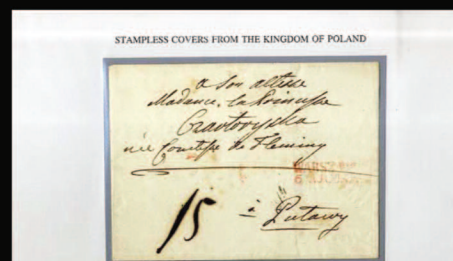 STAMPLESS COVERS FROM THE KINGDOM OF POLAND
a Son altesse
Madame la Princesse
Czartoryska
née Comtesse de Fleming
15 à Pulawy